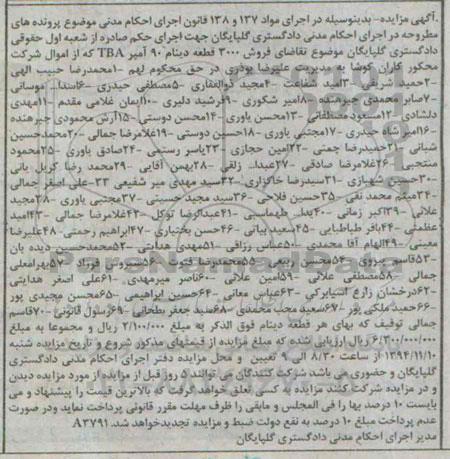 .آگهی مزایده- بدینوسیله در اجرای مواد ۱۳۷ و ۱۳۸ قانون اجرای احکام مدنی موضوع پرونده های
مطروحه در اجرای احکام مدنی دادگستری گلپایگان جهت اجرای حکم صادره از شعبه اول حقوقی
دادگستری گلپایگان موضوع تقاضای فروش ۳۰۰۰ قطعه دینام ۹۰ آمپر TBA که از اموال شرکت
محکور کاران کوشا به مدیریت علیرضا پودری در حق محکوم لهم ۱-محمدرضا حبیب الهی
۲-حمید شریفی ۳-امید شفاعت ۴-مجید ذوالفقاری ۵-مصطفی حیدری ۶-اسدا... موسائی
۷-صابر محمدی جیرهنده ۸-امیر شکوری ۹-فرشید دلیری ۱۰-ایمان غلامی مقدم ۱۱-مهدی
دلشادی ۱۲-مسعود مصطفائی ۱۳-محسن یاوری ۱۴-محسن دوستی ۱۵-آرش محمودی جیرهنده
۱۶-میر شاه حیدری ۱۷-مجتبی یاوری ۱۸-حسین دوستی ۱۹-غلامرضا جمالی ۲۰-محمدحسین
شبانی ۲۱-حمیدرضا چمنی ۲۲-امین حجازی ۲۳-یاسر رستمی ۲۴-صادق یاوری ۲۵-محمود
منتجبی ۲۶-غلامرضا صادقی ۲۷-عبدا... زلقی ۲۸-بهمن آقایی ۲۹-محمد رضا کربل بانی
۳۰-حسن شهبازی ۳۱-سیدرضا خاکزاری ۳۲-سید مهدی میر شفیعی ۳۳-علی اصغر جمالی
۳۴-میثم محمد تقی ۳۵-حسین فلاحی ۳۶-سید مجید حسینی ۳۷-مجتبی یاوری ۳۸-مجید
علائی ۳۹-اکبر زمانی ۴۰-یدا... طهماسبی ۴۱-عبدالرضا توکل ۴۲-غلامرضا جمالی ۴۳-امید
عظمتی ۴۴-باقر طباطبایی ۴۵-سعید بیاتی ۴۶-حسن بختیاری ۴۷-ابراهیم رحمتی ۴۸-علیرضا
معینی ۴۹-الهام آقا محمدی ۵۰-عباس رزاقی ۵۱-مهدی هدایتی ۵۲-محمدحسین دیده بان
۵۳-قاسم خسروی ۵۴-محسن ربیعی ۵۵-محمدرضا فتوت ۵۶-سیروس فورزاد ۵۷-بهرامعلی
جمالی ۵۸-مصطفی علائی ۵۹-امین علائی ۶۰-ناصر میرمهدی ۶۱-علی اصغر هدایتی
۶۲-درخشان زارع آسیابرکی ۶۳-عباس معانی ۶۴-حسین ابراهیمی ۶۵-محسن مجیدی پور
۶۶-حمید ملکی پور ۶۷-سعید محب محمدی ۶۸-سعید جعفر بطحائی ۶۹-رسول قانونی ۷۰-قاسم
جمالی توقیف که بهای هر قطعه دینام فوق الذکر به مبلغ ۲/۱۰۰/۰۰۰ ریال و مجموعا به مبلغ
۶/۳۰۰/۰۰۰/۰۰۰ ریال ارزیابی شده که مبلغ مزایده از قیمتهای مذکور شروع و تاریخ مزایده شنبه
۱۳۹۴/۱۱/۱۰ از ساعت ۸/۳۰ الی ۹ تعیین و محل مزایده دفتر اجرای احکام مدنی دادگستری
گلپایگان و حضوری می باشد شرکت کنندگان می توانند ۵ روز قبل از مزایده از مورد مزایده دیدن
و در مزایده شرکت کنند مزایده به کسی تعلق خواهد گرفت که بالاترین قیمت را پیشنهاد و می
بایست ۱۰ درصد بها را فی المجلس و مابقی را ظرف مهلت مقرر قانونی پرداخت نماید ودر صورت
عدم پرداخت مبلغ ۱۰ درصد به نفع دولت ضبط و مزایده تجدیدخواهد شد. A۳۷۹۱
مدیر اجرای احکام مدنی دادگستری گلپایگان